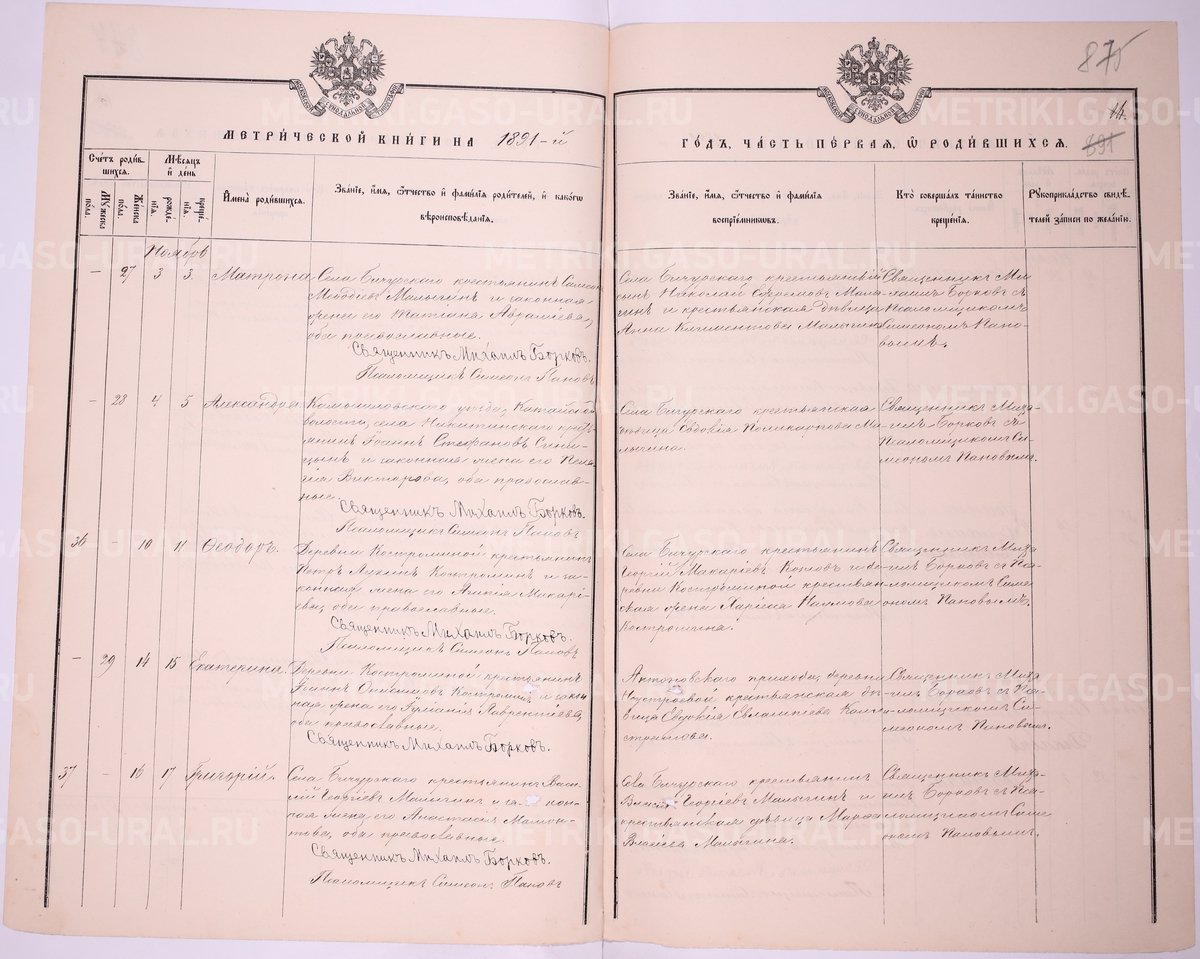 875
14.
891
МЕТРИЧЕСКОЙ КНИГИ НА 1891-й
ГОДЪ, ЧАСТЬ ПЕРВАЯ, Ѿ РОДИВШИХСЯ.
Счетъ родившихся.
Мужеска пола.
Женска пола.
Мѣсяцъ и день
рожденія.
крещенія.
Имена родившихся.
Званіе, имя, отчество и фамилія родителей, и какогѡ
вѣроисповѣданія.
Званіе, имя, отчество и фамилія
воспріемниковъ.
Кто совершалъ таинство
крещенія.
Рукоприкладство свидѣ-
телей записи по желанію.
Ноябрь
— 27 3 3. Матрона
Села Бичурскаго крестьянинъ Симеонъ
Меѳодіевъ Малыгинъ и законная
жена его Татіана Авраміева,
оба православные.
Священникъ Михаилъ Борковъ.
Псаломщикъ Симеонъ Пановъ
Села Бичурскаго крестьянскій
сынъ Николай Ефремовъ Малы
гинъ и крестьянская дѣвица
Анна Климентова Малыгина
Священникъ Ми
хаилъ Борковъ съ
псаломщикомъ
Симеономъ Пано-
вымъ.
— 28 4. 5 Александра
Камышловскаго уѣзда, Катайской
волости, села Никитинскаго кресть
янинъ Іоаннъ Стефановъ Сини
цынъ и законная жена его Пела
гія Викторова, оба православ-
ные.
Священникъ Михаилъ Борковъ.
Псаломщикъ Симеонъ Пановъ
Села Бичурскаго крестьянская
дѣвица Евдокія Поликарпова Ма
лыгина.
Священникъ Миха-
илъ Борковъ съ
псаломщикомъ Си-
меономъ Пановымъ.
36 — 10 11 Ѳеодоръ.
Деревни Костроминой крестьянинъ
Петръ Лукинъ Костроминъ и за-
конная жена его Анна Макарі-
ева, оба православные.
Священникъ Михаилъ Борковъ.
Псаломщикъ Симеонъ Пановъ
Села Бичурскаго крестьянинъ
Георгій Макаріевъ и де
ревни Костроминой крестьян
ская жена Наумова
Костромина.
Священникъ Миха
илъ Борковъ съ пса
ломщикомъ Симе
ономъ Пановымъ.
— 29 14 15 Екатерина.
Деревни Костроминой крестьянинъ
Іоаннъ Онисимовъ Костроминъ и закон
ная жена его Лаврентіева,
оба православные.
Священникъ Михаилъ Борковъ.
Антоновскаго прихода, деревни
крестьянская дѣ
вица Евдокія Евлампіева
Священникъ Миха
илъ Борковъ съ пса
ломщикомъ Си-
меономъ Пановымъ.
37 — 16 17 Григорій.
Села Бичурскаго крестьянинъ Васи
лій Георгіевъ Малыгинъ и за кон
ная жена его Анастасія Мамон-
това, оба православные.
Священникъ Михаилъ Борковъ.
Псаломщикъ Симеонъ Пановъ
Села Бичурскаго крестьянинъ
Георгіевъ Малыгинъ и
крестьянская дѣвица Марѳа
Власіева Малыгина.
Священникъ Миха-
илъ Борковъ съ пса
ломщикомъ Симе
ономъ Пановымъ.
METRIKI.GASO-URAL.RU